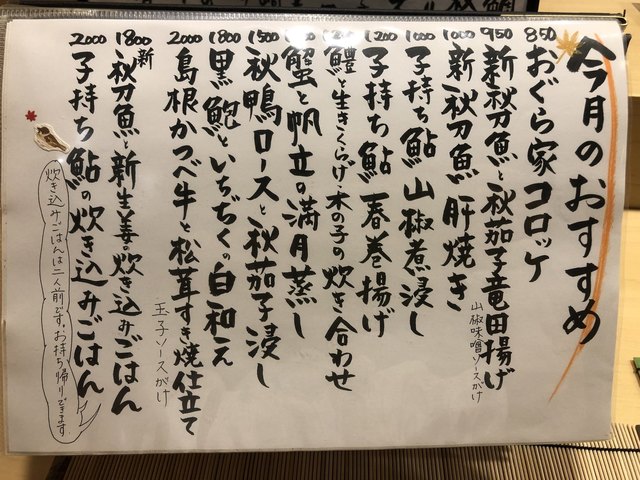 今月のおすすめ
850 おぐら家コロッケ
950 新秋刀魚と秋茄子竜田揚げ
山椒味噌ソースがけ
1000 新秋刀魚肝焼き
1000 子持ち鮎山椒煮浸し
1200 子持ち鮎春巻揚げ
鱧と生きくらげ・木の子の炊き合わせ
蟹と帆立の満月蒸し
1500 秋鴨ロースと秋茄子浸し
1800 黒鮑といちぢくの白和え
2000 島根かつべ牛と松茸すき焼仕立て
玉子ソースがけ
1800 新秋刀魚と新生姜の炊き込みごはん
2000 子持ち鮎の炊き込みごはん
炊き込みごはんは二人前です。お持ち帰りできます。